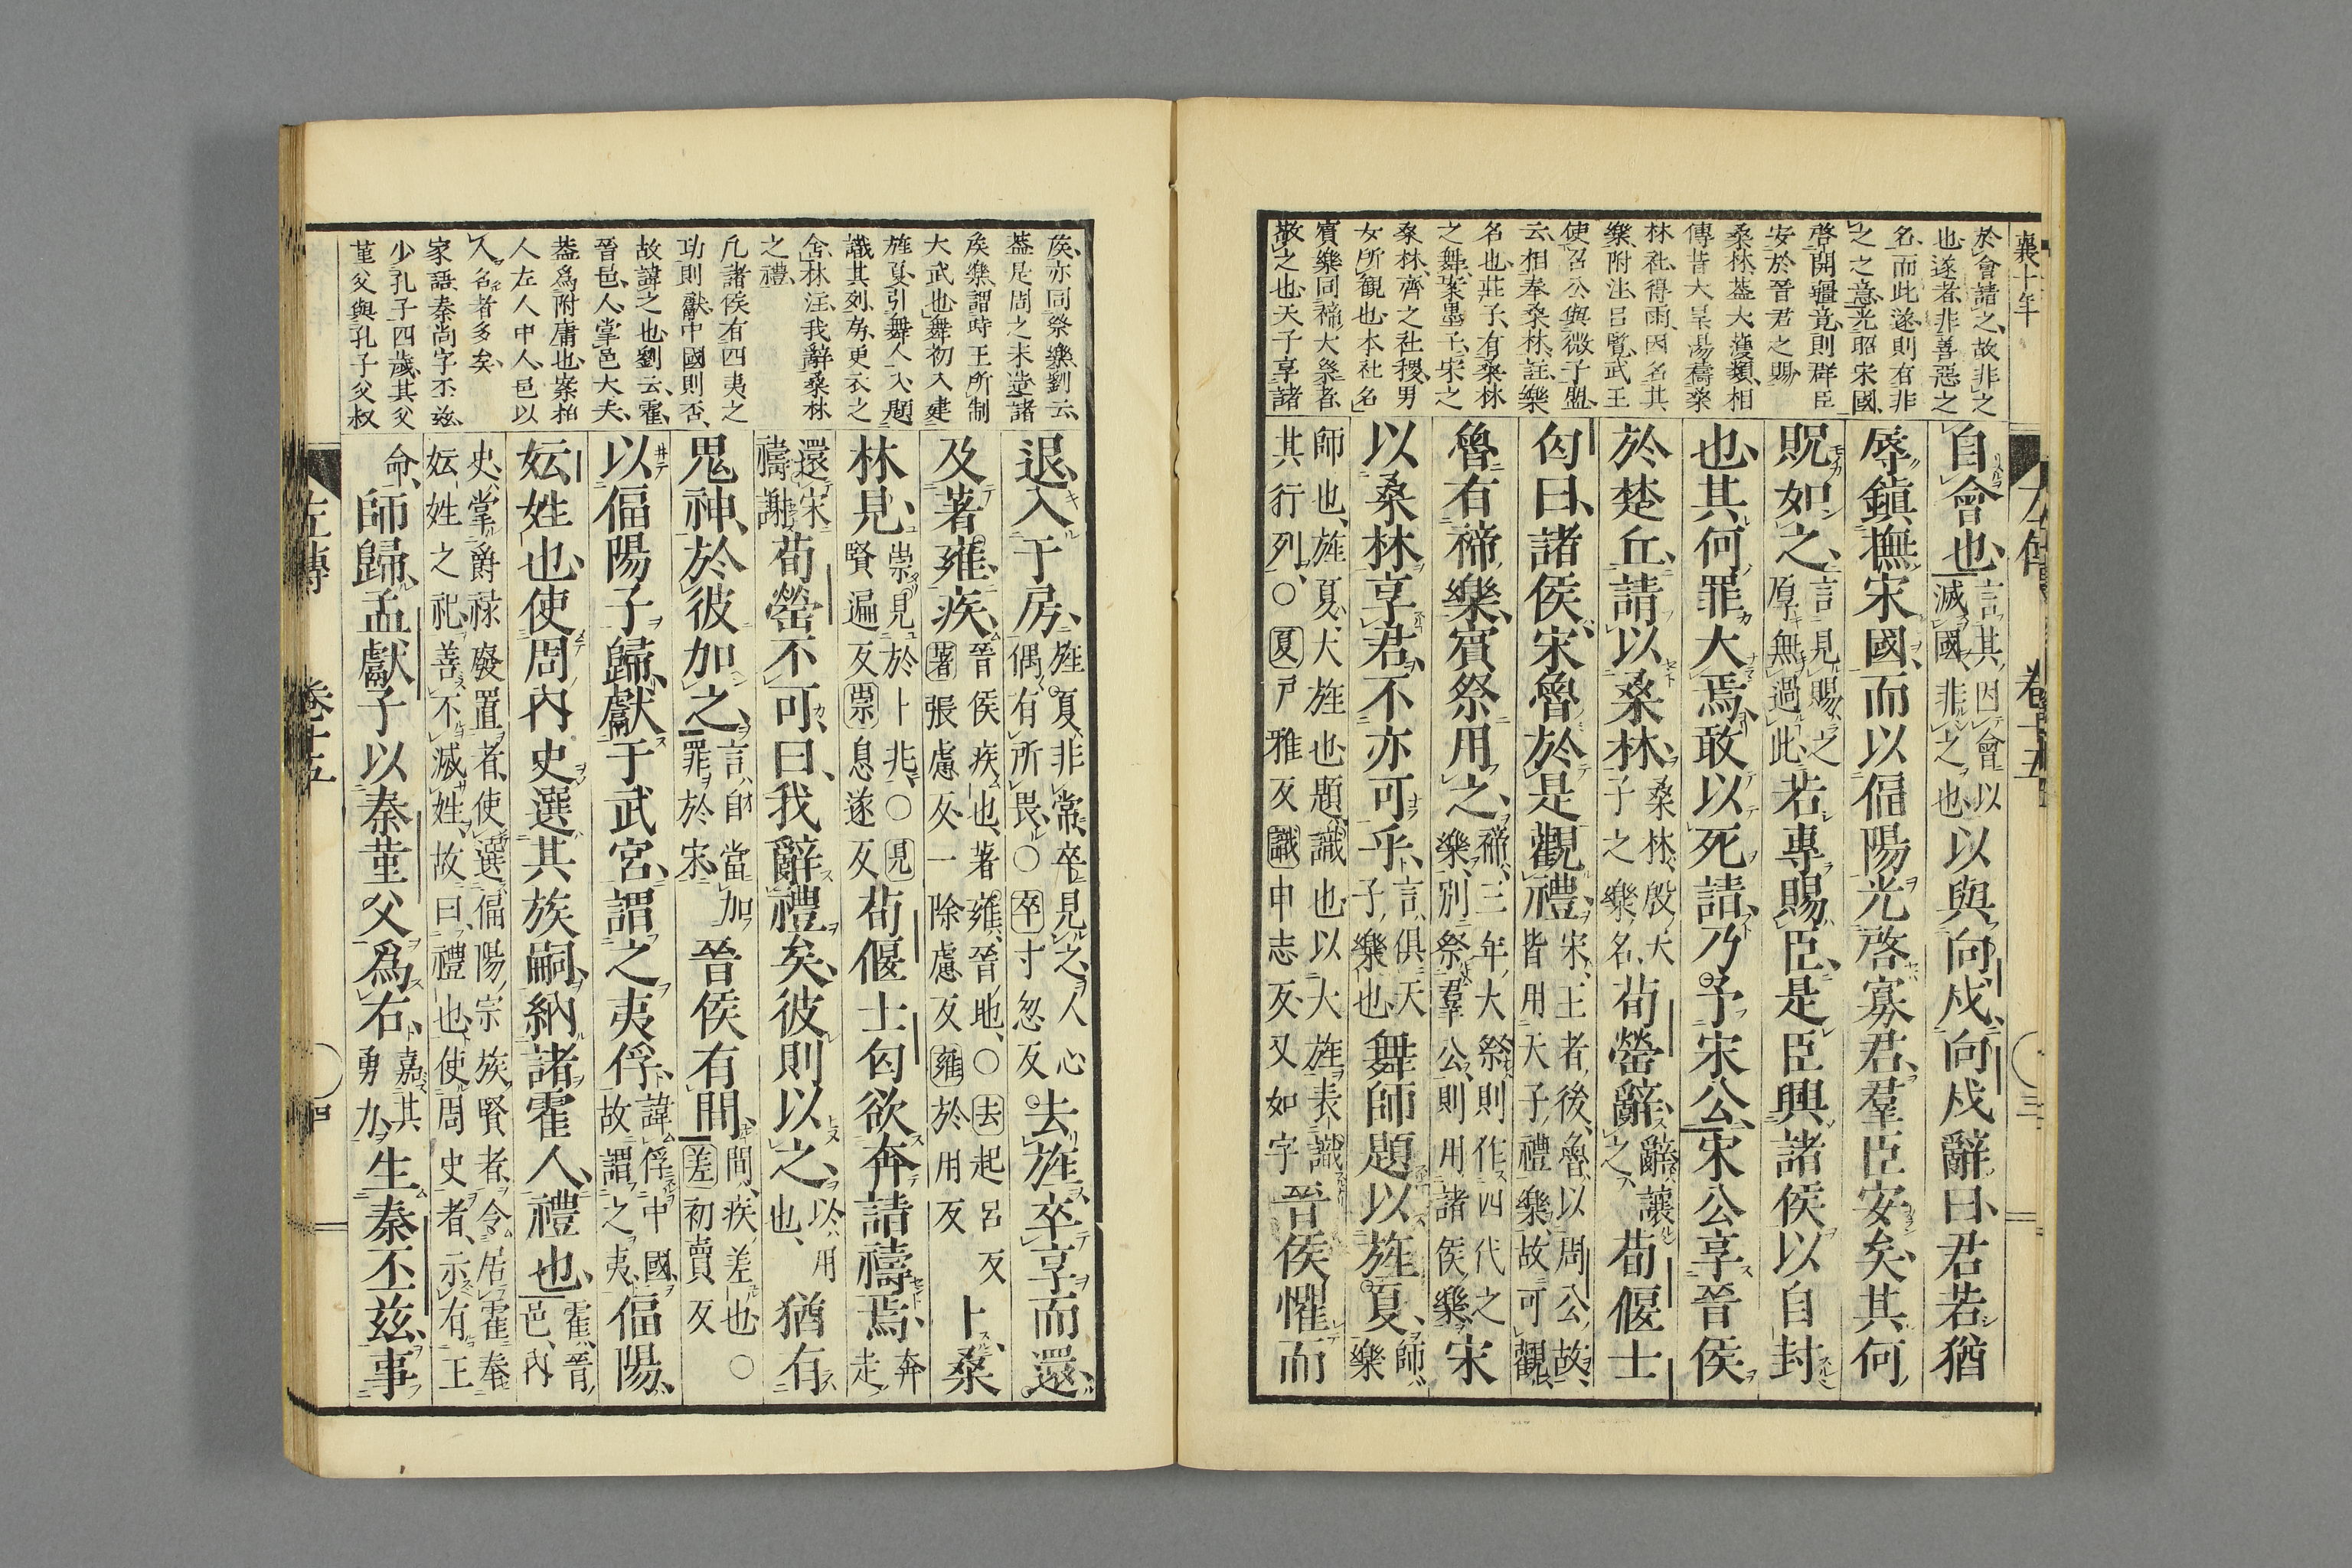 襄十年
於會諸之故非之
也遂者非善惡之
名而此遂則有非
之之意光昭宋國
啓開疆竟則群臣
安於晉君之賜
桑林蓋大濩類相
傳昔大旱湯禱桑
林社得雨因名其
樂附注呂覽武王
使召公與微子盟
云相奉桑林註樂
名也莊子有桑林
之舞案墨子宋之
桑林齊之社稷男
女所觀也本社名
賓樂同禘大祭者
故之也天子享諸
左傳 卷十五 三
自會也言其因會以滅國非之也以與向戌向戌辭曰君若猶
辱鎮撫宋國而以偪陽光啓寡君羣臣安矣其何
貺如之言見賜之厚無過此若專賜臣是臣興諸侯以自封
也其何罪大焉敢以死請乃予宋公宋公享晉侯
於楚丘請以桑林桑林殷天子之樂名荀罃辭辭讓之荀偃士
匄曰諸侯宋魯於是觀禮宋王者後魯以周公故皆用天子禮樂故可觀
魯有禘樂賓祭用之禘三年大祭則作四代之樂別祭羣公則用諸侯樂宋
以桑林享君不亦可乎言俱天子樂也舞師題以旌夏師樂
師也旌夏大旌也題識也以大旌表識其行列○夏戸雅反識申志反又如字晉侯懼而
侯亦同祭樂劉云
蓋是周之末造諸
侯樂謂時王所制
大武也舞初入建
旌夏引舞人入題
識其列旁更衣之
舍林注我辭桑林
之禮
凡諸侯有四夷之
功則獻中國則否
故諱之也劉云霍
晉邑人掌邑大夫
蓋爲附庸也案柏
人左人中人邑以
人名者多矣
家語秦尚字丕兹
少孔子四歲其父
堇父與孔子父叔
退入于房旌夏非常卒見之人心偶有所畏○卒寸忽反去旌卒享而還
及著雍疾晉侯疾也著雍晉地○去起呂反著張慮反一除慮反雍於用反卜桑
林見祟見於卜兆○見賢遍反祟息遂反荀偃士匄欲奔請禱焉奔走
還宋禱謝荀罃不可曰我辭禮矣彼則以之以用也猶有
鬼神於彼加之言自當加罪於宋晉侯有間間疾差也○差初賣反
以偪陽子歸獻于武宮謂之夷俘諱俘中國故謂之夷偪陽
妘姓也使周內史選其族嗣納諸霍人禮也霍晉邑內
史掌爵祿廢置者使選偪陽宗族賢者令居霍奉妘姓之祀善不滅姓故曰禮也使周史者示有王
命師歸孟獻子以秦堇父爲右嘉其勇力生秦丕兹事
左傳 卷十五 四